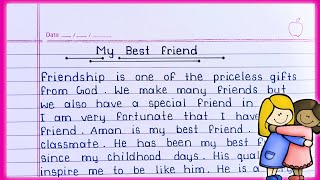 Date __/__/__
My Best friend
friendship is one of the priceless gifts
from God. We make many friends but
we also have a special friend in
I am very fortunate that I have
friend. Aman is my best friend.
classmate. He has been my best
since my childhood days. His
inspire me to be like him. He is a